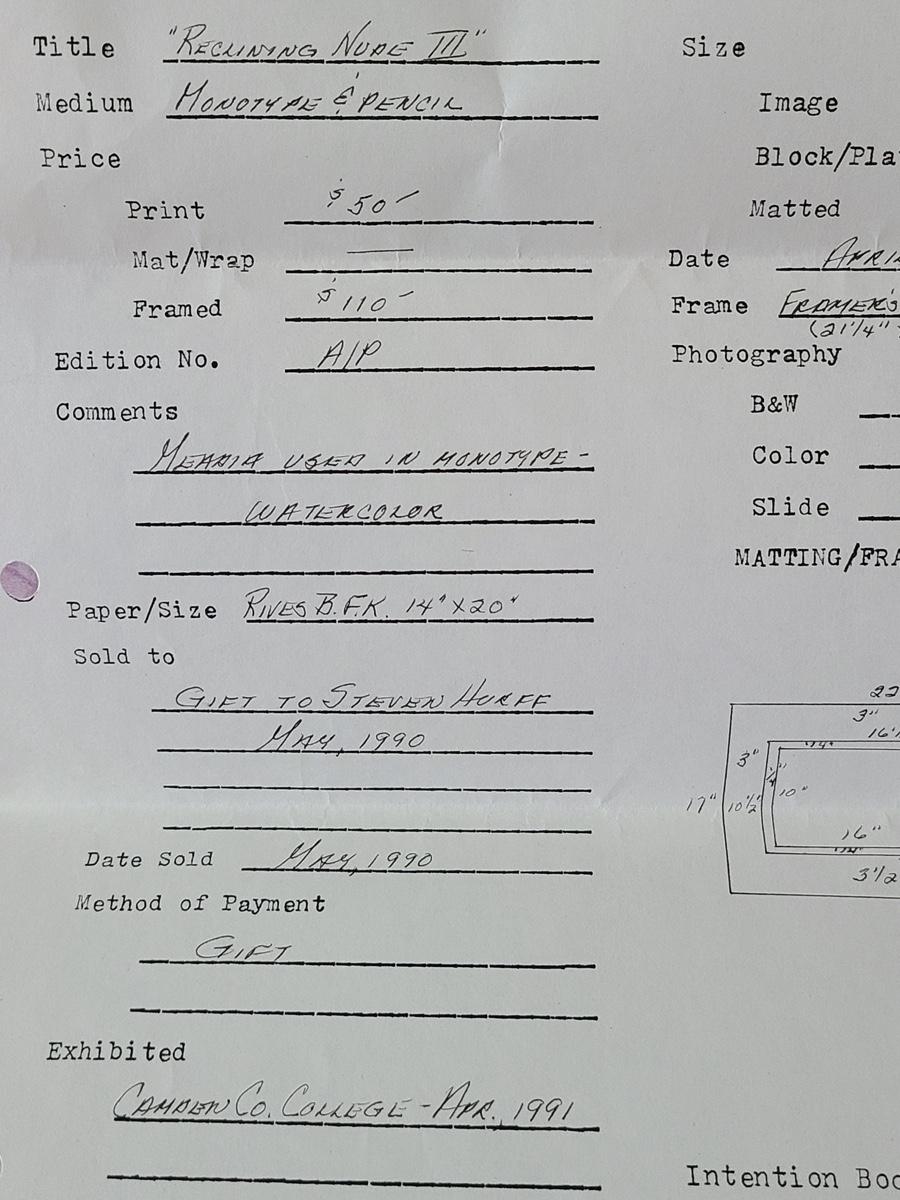 Title "Reclining Nude III" Size
Medium Monotype & pencil Image
Price Block/Pla
Print $50- Matted
Mat/Wrap — Date April
Framed $110- Frame Framer's
(21 1/4"
Edition No. A/P Photography
Comments B&W
Meadia used in monotype- Color
watercolor Slide
MATTING/FRA
Paper/Size Rives B.F.K. 14" x 20"
Sold to
Gift to Steven Hurff 22
3"
May, 1990 16 1/
1/4"
3"
1/4"
17" 10 1/2" 10"
16"
Date Sold May, 1990 1/4"
3 1/2
Method of Payment
Gift
Exhibited
Camden Co. College - Apr. 1991
Intention Boo